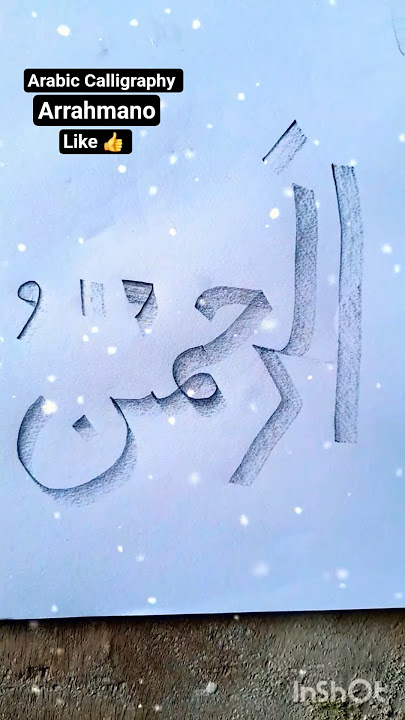 Arabic Calligraphy
Arrahmano
Like 👍
اَلرحْمٰنُ
InShOt